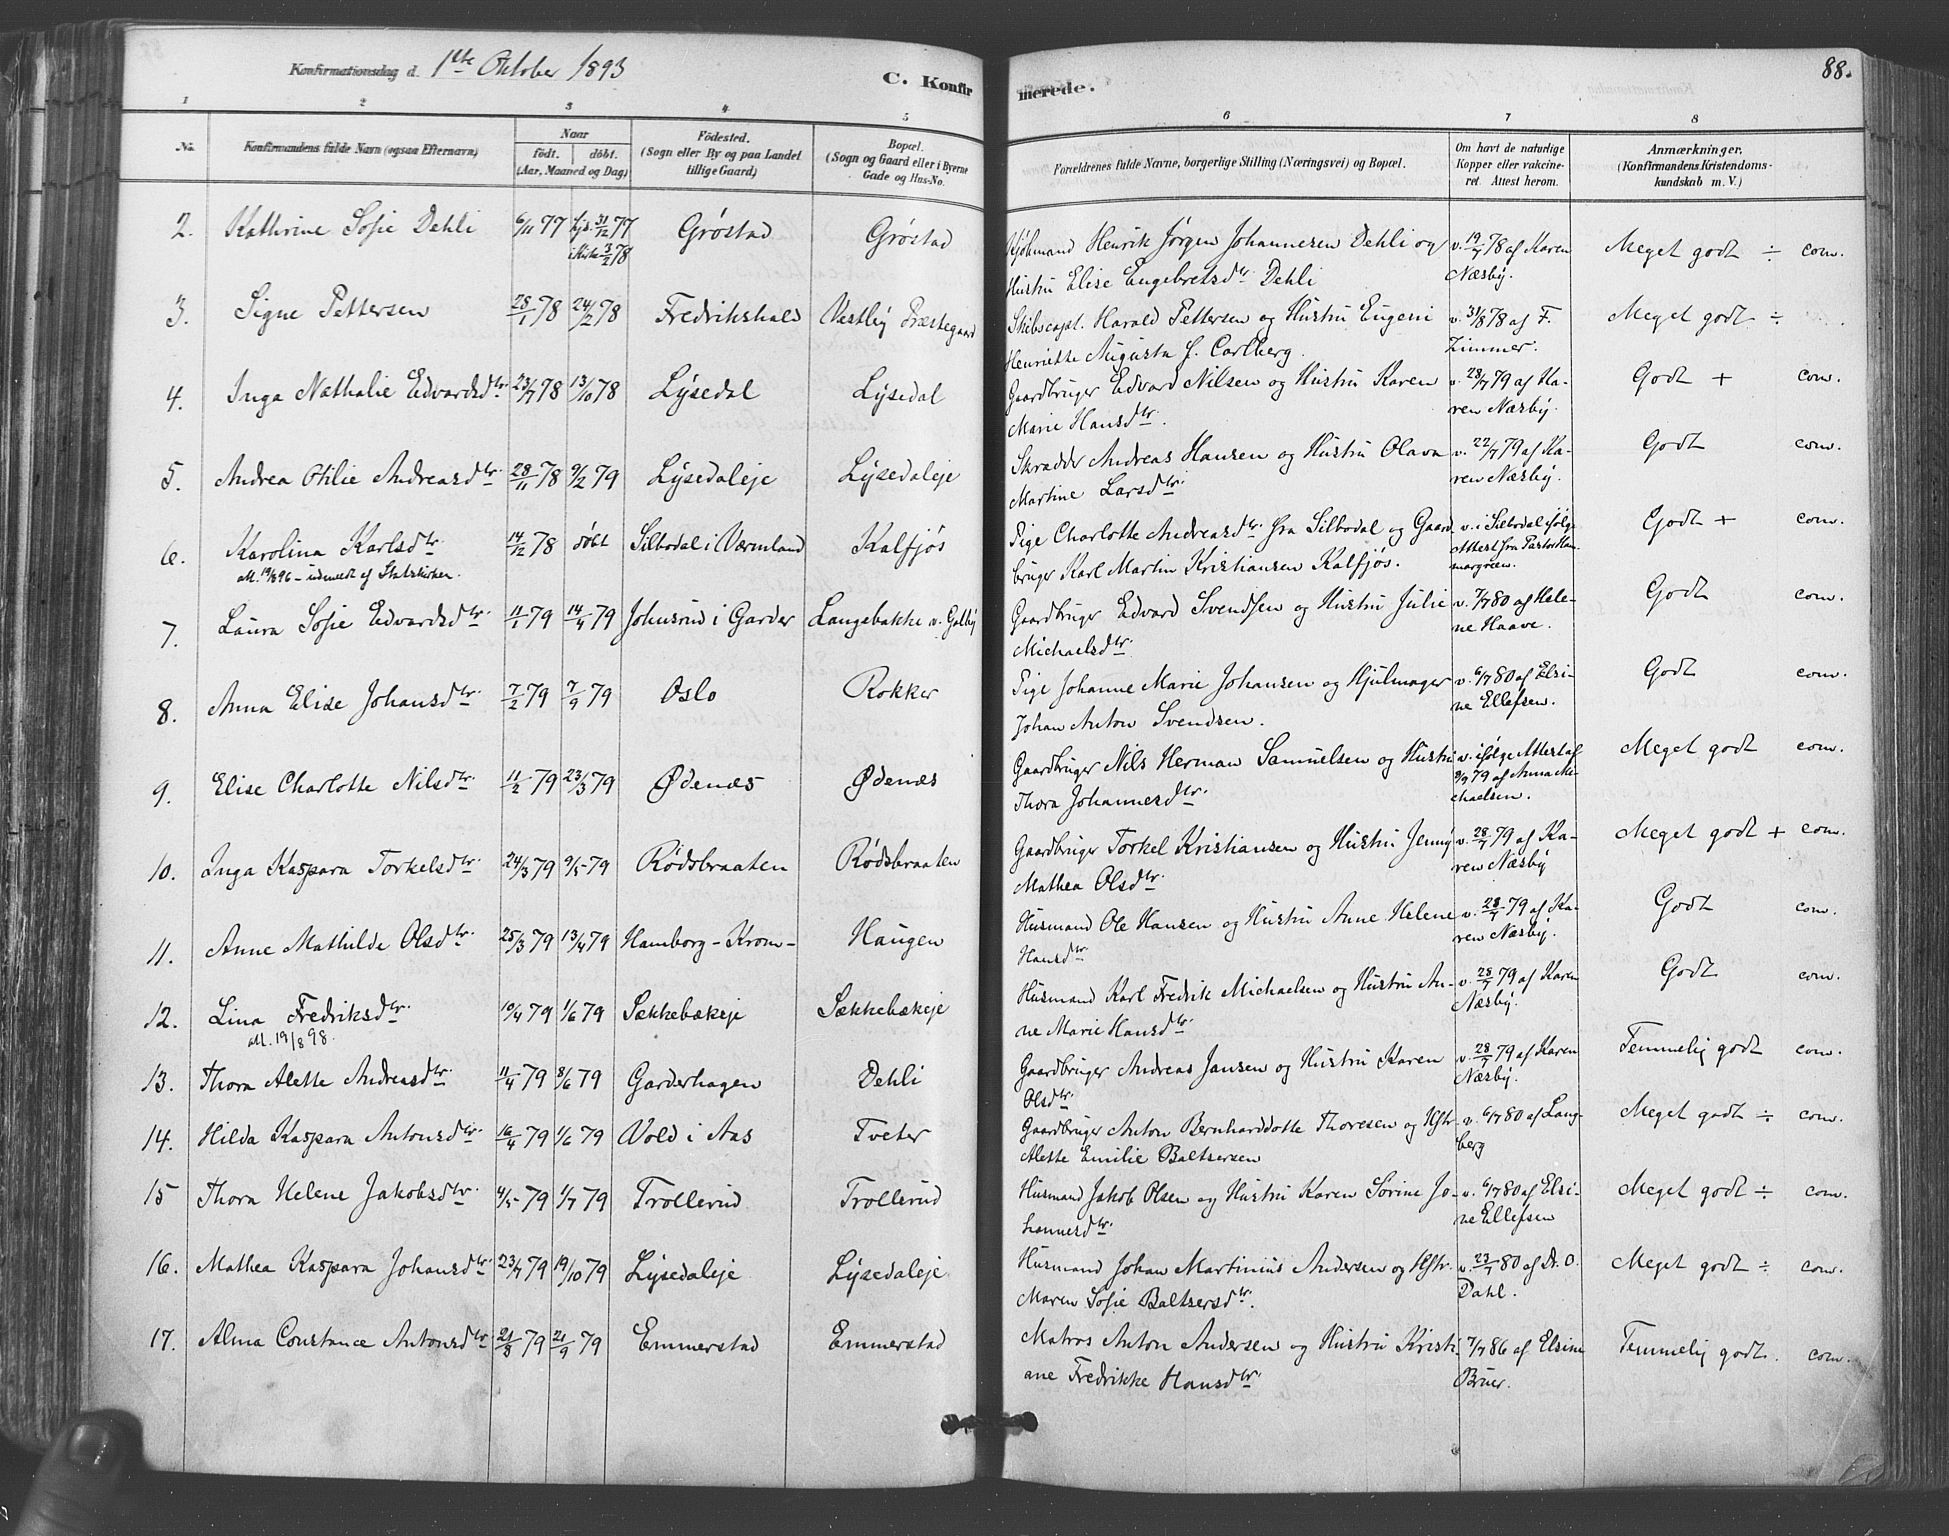 Konfirmationsdag d. 1ste Oktober 1893
C. Konfirmerede.
88.
1 2 3 4 5 6 7 8
No.
Konfirmandens fulde Navn (ogsaa Efternavn)
Naar
födt. döbt.
(Aar, Maaned og Dag)
Födested.
(Sogn eller By og paa Landet
tillige Gaard)
Bopæl.
(Sogn og Gaard eller i Byerne
Gade og Hus-No.
Forældrenes fulde Navne, borgerlige Stilling (Næringsvei) og Bopæl.
Om havt de naturlige
Kopper eller vakcine-
ret. Attest herom.
Anmærkninger.
(Konfirmandens Kristendoms-
kundskab m. V.)
2. Kathrine Sofie Dehli 6/11 77 hjd. 31/12 77 Gröstad Gröstad
i Kirke 3/2 78
Kjöbmand Henrik Jörgen Johannesen Dehli og v. 19/7 78 af Karen Meget godt ÷ com.
Hustru Elise Engebretsdtr. Dehli Næsby.
3. Signe Pettersen 28/1 78 24/2 78 Fredrikshald Vestby Præstegaard
Skibscapt. Harald Pettersen og Hustru Eugeni v. 31/8 78 af F. Meget godt ÷
Henriette Augusta f. Carlberg. Zimmer.
4. Inga Nathalie Edvardsdtr. 23/7 78 13/10 78 Lysedal Lysedal
Gaardbruger Edvard Nilsen og Hustru Karen v. 28/7 79 af Ka- Godt + com.
Marie Hansdtr. ren Næsby.
5. Andrea Otilie Andreasdtr. 28/11 78 9/2 79 Lysedaleje Lysedaleje
Skrædder Andreas Hansen og Hustru Olava v. 22/7 79 af Ka- Godt com.
Martine Larsdtr. ren Næsby.
6. Karolina Karlsdtr. 14/12 78 döbt Silbodal i Værmland Kalfjös
att. 19/8 96 - udmeldt af Statskirken.
Pige Charlotte Andreasdtr. fra Silbodal og Gaard v. i Silbodal ifölge Godt + com.
bruger Karl Martin Kristiansen Kalfjös. Attest fra Pastor Ham
margreen.
7. Laura Sofie Edvardsdtr. 11/1 79 14/4 79 Johnsrud i Garder Langebakke v. Galby
Gaardbruger Edvard Svendsen og Hustru Julie v. 7/7 80 af Hele- Godt com.
Michaelsdtr. ne Haave.
8. Anna Elise Johansdtr. 7/2 79 7/9 79 Oslo Rokker
Pige Johanne Marie Johansen og Hjulmager v. 6/7 80 af Elsi- Godt com.
Johan Anton Svendsen. ne Ellefsen.
9. Elise Charlotte Nilsdtr. 11/2 79 23/3 79 Ødenæs Ødenæs
Gaardbruger Nils Herman Samuelsen og Hustru v. ifölge Attest af Meget godt com.
Thora Johannesdtr. 9/9 79 af Anna Mi-
chaelsen.
10. Inga Kaspara Torkelsdtr. 24/3 79 9/5 79 Rödsbraaten Rödsbraaten
Gaardbruger Torkel Kristiansen og Hustru Jenny v. 28/7 79 af Ka- Meget godt + com.
Mathea Olsdtr. ren Næsby
11. Anne Mathilde Olsdtr. 25/3 79 13/4 79 Hamborg-Krom- Haugen
Husmand Ole Hansen og Hustru Anne Helene v. 28/7 79 af Ka- Godt com.
Hansdtr. ren Næsby.
12. Lina Fredriksdtr. 10/4 79 1/6 79 Sækkebækeje Sækkebækeje
att. 19/8 98.
Husmand Karl Fredrik Michaelsen og Hustru An- v. 28/7 79 af Karen Godt com.
ne Marie Hansdtr. Næsby.
13. Thora Alette Andreasdtr. 11/4 79 8/6 79 Garderhagen Dehli
Gaardbruger Andreas Jansen og Hustru Karen v. 28/7 79 af Karen Temmelig godt com.
Olsdtr. Næsby.
14. Hilda Kaspara Antonsdtr. 16/4 79 1/6 79 Vold i Aas Tveter
Gaardbruger Anton Bernharddotte Thoresen og Hstr. v. 6/7 80 af Lang- Meget godt ÷ com.
Alette Emilie Baltsersen berg
15 Thora Helene Jakobsdtr. 4/5 79 1/7 79 Trollerud Trollerud
Husmand Jakob Olsen og Hustru Karen Sörine Jo- v. 6/7 80 af Elsi- Meget godt ÷ com.
hannesdtr. ne Ellefsen
16. Mathea Kaspara Johansdtr. 23/7 79 19/10 79 Lysedaleje Lysedaleje
Husmand Johan Martinius Andersen og Hstr. v. 23/7 80 af Dr. O. Meget godt ÷ com.
Maren Sofie Baltsersdtr. Dahl.
17. Alma Constance Antonsdtr 21/8 79 21/9 79 Emmerstad Emmerstad
Matros Anton Andersen og Hustru Kristi- 7/7 86 af Elsine Temmelig godt. com.
ane Fredrikke Hansdtr. Bruer.